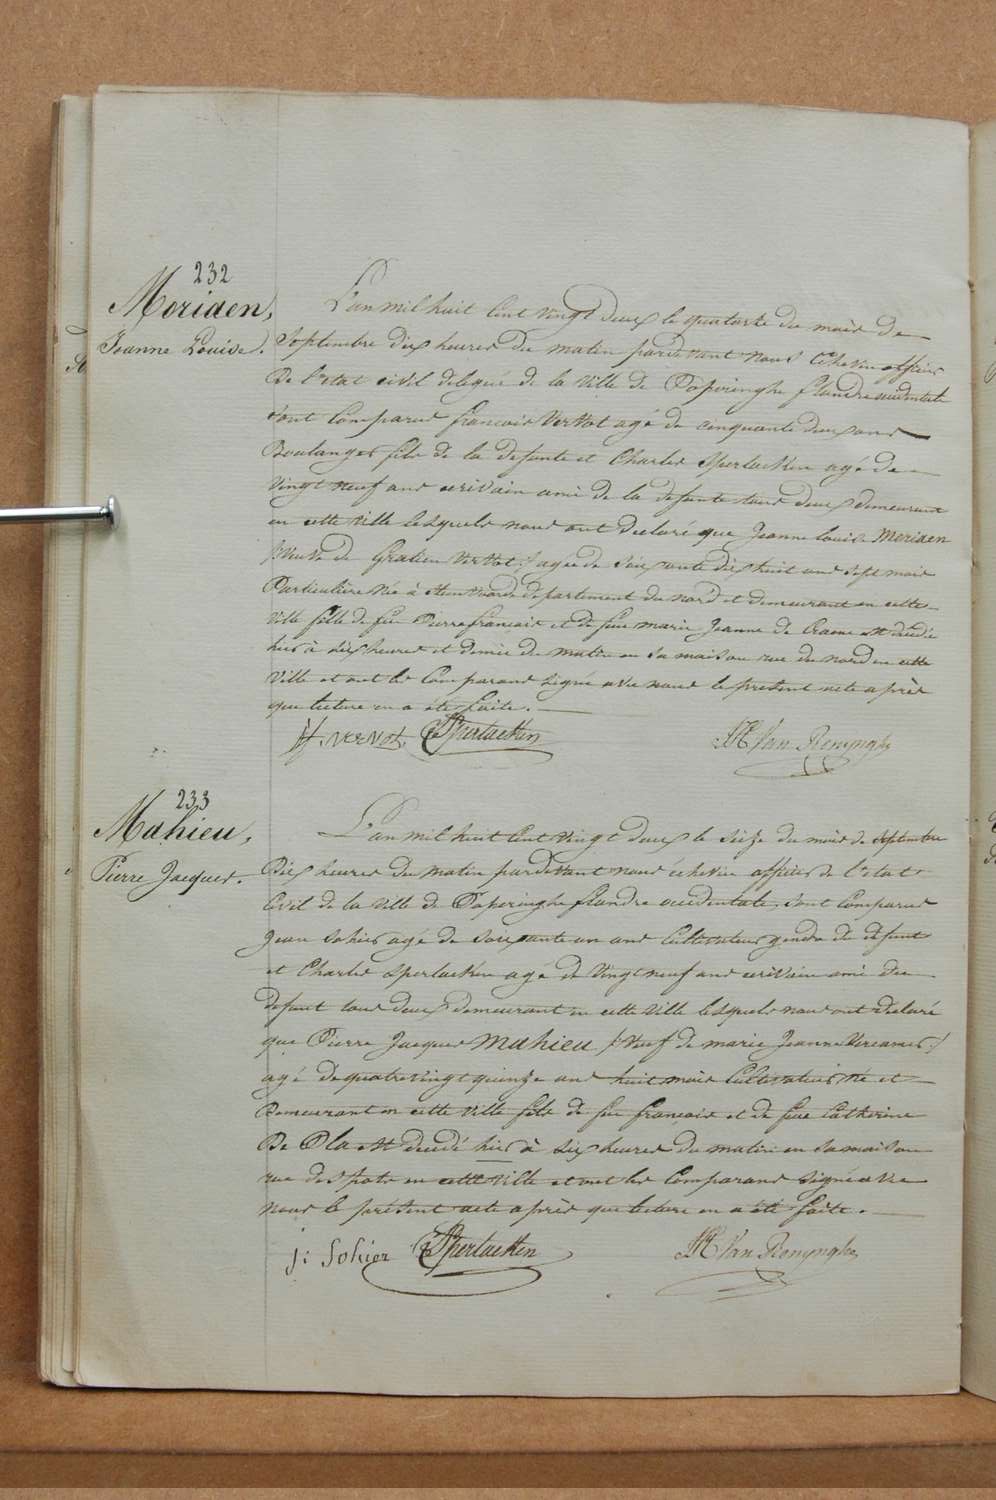 232
Meriaen,
Jeanne Louise.
L'an mil huit Cent vingt deux le quatorze du mois de
Septembre dix heures du matin pardevant nous Echevin officier
De l'etat civil delegué de la ville de Poperinghe flandre occidentale
sont Comparus francois Vervot agé de cinquante deux ans
Boulanger fils de la defunte et Charles Sperlaeken agé de
vingt neuf ans ecrivain ami de la defunte tous deux demeurant
en cette ville lesquels nous ont declaré que Jeanne Louise Meriaen
/: veuve de Gratien Vervot :/ agée de Soixante dix huit ans sept mois
Particulière née à Steenvoorde departement du nord et demeurant en cette
ville fille de feu Pierre francois et de feue marie Jeanne de Craene est décédée
hier à six heures et demie du matin en sa maison rue du nord en cette
ville et ont les Comparans signé avec nous le présent acte après
que lecture en a été faite.
ff. VERVOT, CSperlaeken HVan Renynghe
233
Mahieu,
Pierre Jacques.
L'an mil huit Cent vingt deux le seize du mois de septembre
Dix heures du matin pardevant nous échevin officier de l'etat
Civil de la ville de Poperinghe flandre occidentale, sont Comparus
Jean Sohier agé de soixante un ans Cultivateur gendre du défunt
et Charles Sperlaeken agé de vingt neuf ans ecrivain ami du
defunt tous deux demeurant en cette ville lesquels nous ont declaré
que Pierre Jacques Mahieu /: veuf de marie Jeanne Vercamer :/
agé de quatre vingt quinze ans huit mois Cultivateur né et
Demeurant en cette ville fils de feu francois et de feue Catherine
De Pla est decedé hier à six heures du matin en sa maison
rue des pots en cette ville et ont les Comparans signé avec
nous le présent acte après que lecture en a été faite.
j: Sohier CSperlaeken HVan Renynghe